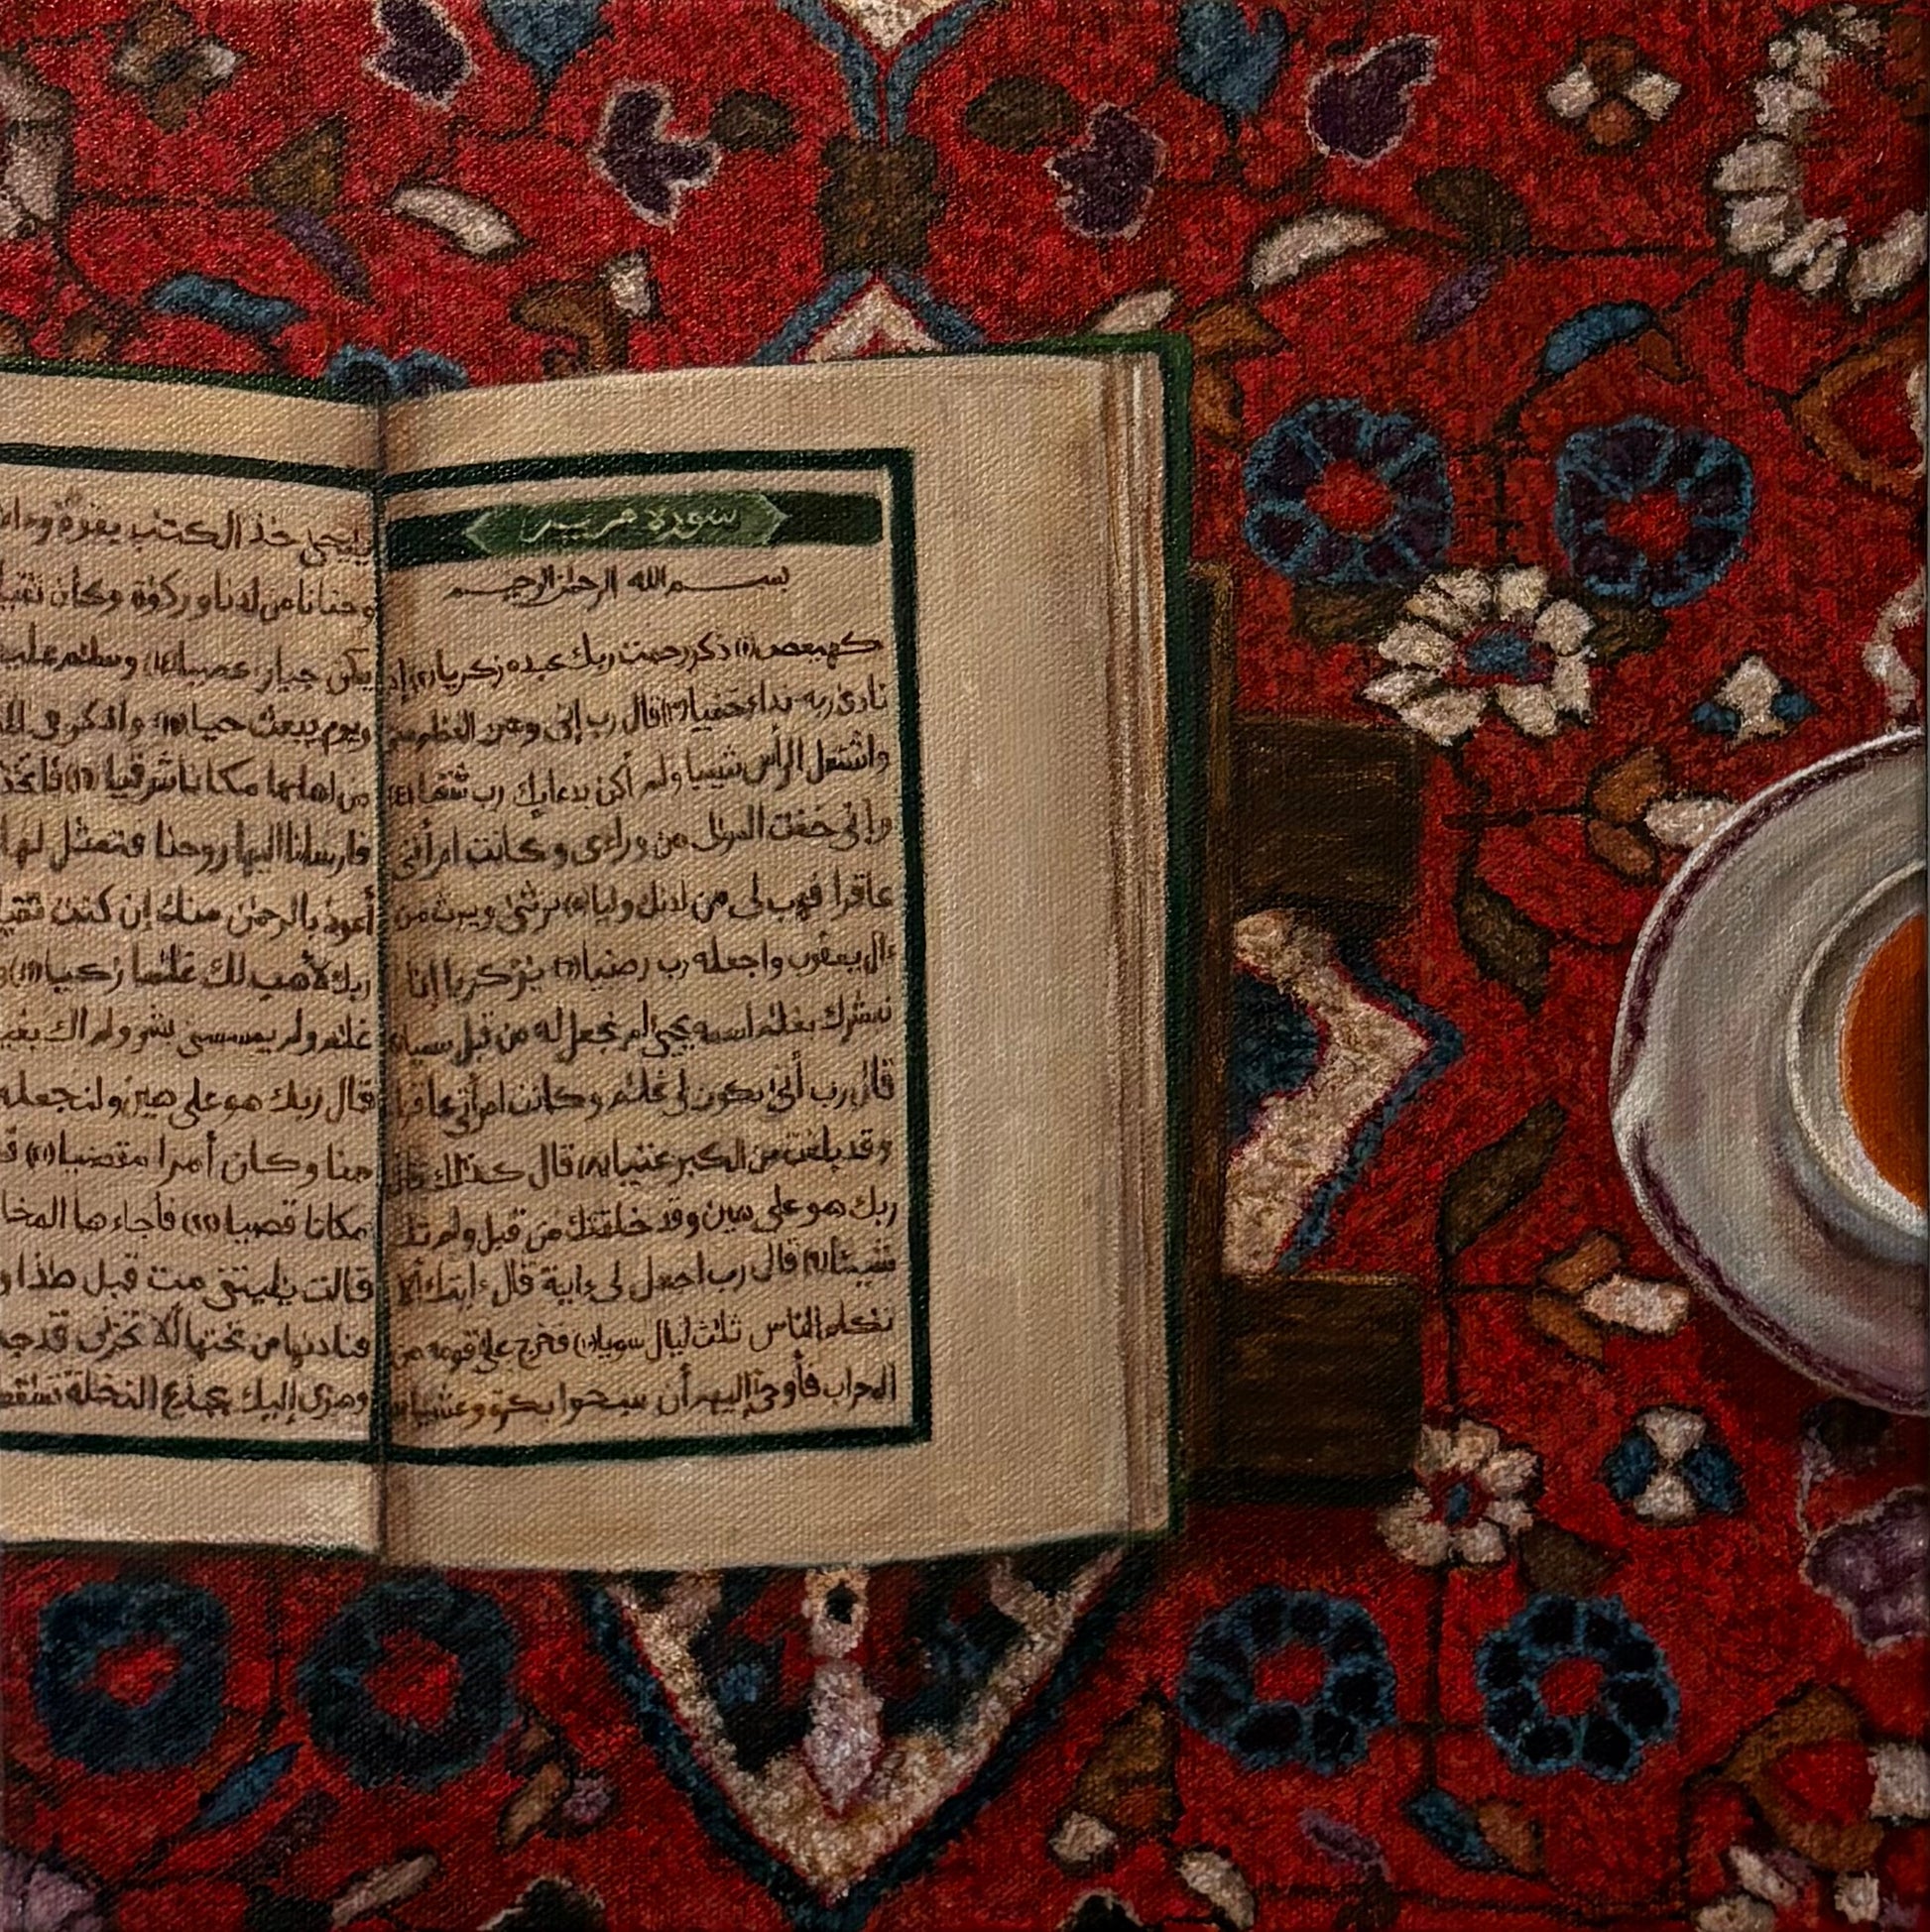 سورة مريم
بسم الله الرحمن الرحيم
كهيعص (١) ذكر رحمت ربك عبده زكريا (٢) إذ
نادى ربه نداء خفيا (٣) قال رب إنى وهن العظم
واشتعل الرأس شيبا ولم أكن بدعايك رب شقيا (٤)
وإنى خفت المولى من وراءى وكانت امرأتى
عاقرا فهب لى من لدنك وليا (٥) يرثنى ويرث من
ءال يعقوب واجعله رب رضيا (٦) يزكريا إنا
نبشرك بغلم اسمه يحيى لم نجعل له من قبل سميا
قال رب أنى يكون لى غلم وكانت امرأتى عاقرا
وقد بلغت من الكبر عتيا (٨) قال كذلك قال
ربك هو على هين وقد خلقتك من قبل ولم تك
شيئا (٩) قال رب اجعل لى ءاية قال ءايتك ألا
تكلم الناس ثلث ليال سويا (١٠) فخرج على قومه من
المحراب فأوحى إليهم أن سبحوا بكرة وعشيا
ييحيى خذ الكتب بقوة وءا
وحنانا من لدنا وزكوة وكان تقيا
يكن جبارا عصيا (١٤) وسلم عليه
ويوم يبعث حيا (١٥) واذكر فى ال
من اهلها مكانا شرقيا (١٦) فاتخذ
فارسلنا اليها روحنا فتمثل لها
أعوذ بالرحمن منك إن كنت تقيا
ربك لأهب لك غلما زكيا (١٩)
غلم ولم يمسسنى بشر ولم اك بغيا
قال ربك هو على هين ولنجعله
منا وكان أمرا مقضيا (٢١)
مكانا قصيا (٢٢) فأجاءها المخا
قالت يليتنى مت قبل هذا و
فنادىها من تحتها ألا تحزنى قد ج
وهزى إليك بجذع النخلة تسقط